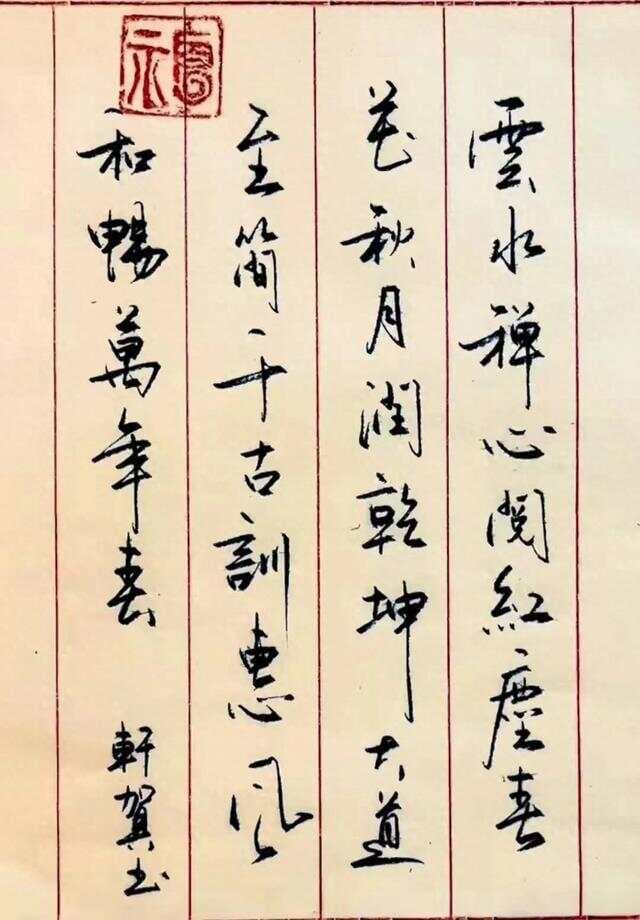 雲水禪心閱紅塵春
花秋月潤乾坤大道
至簡千古訓惠風
和暢萬年春
軒賀书
福